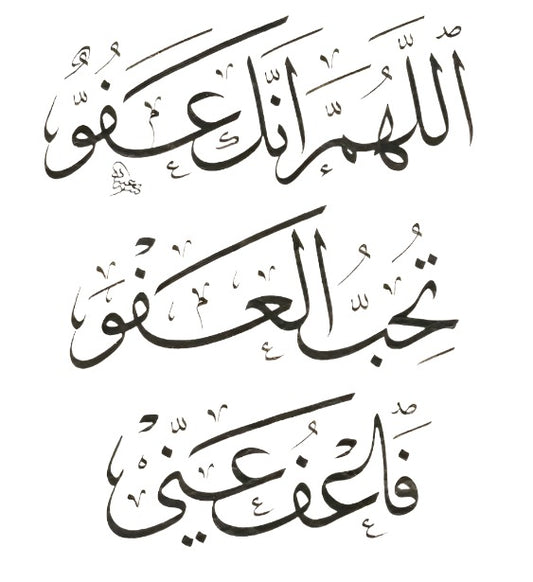 اَللّٰهُمَّ اِنَّكَ عَفُوٌّ
تُحِبُّ الْعَفْوَ
فَاعْفُ عَنِّيْ